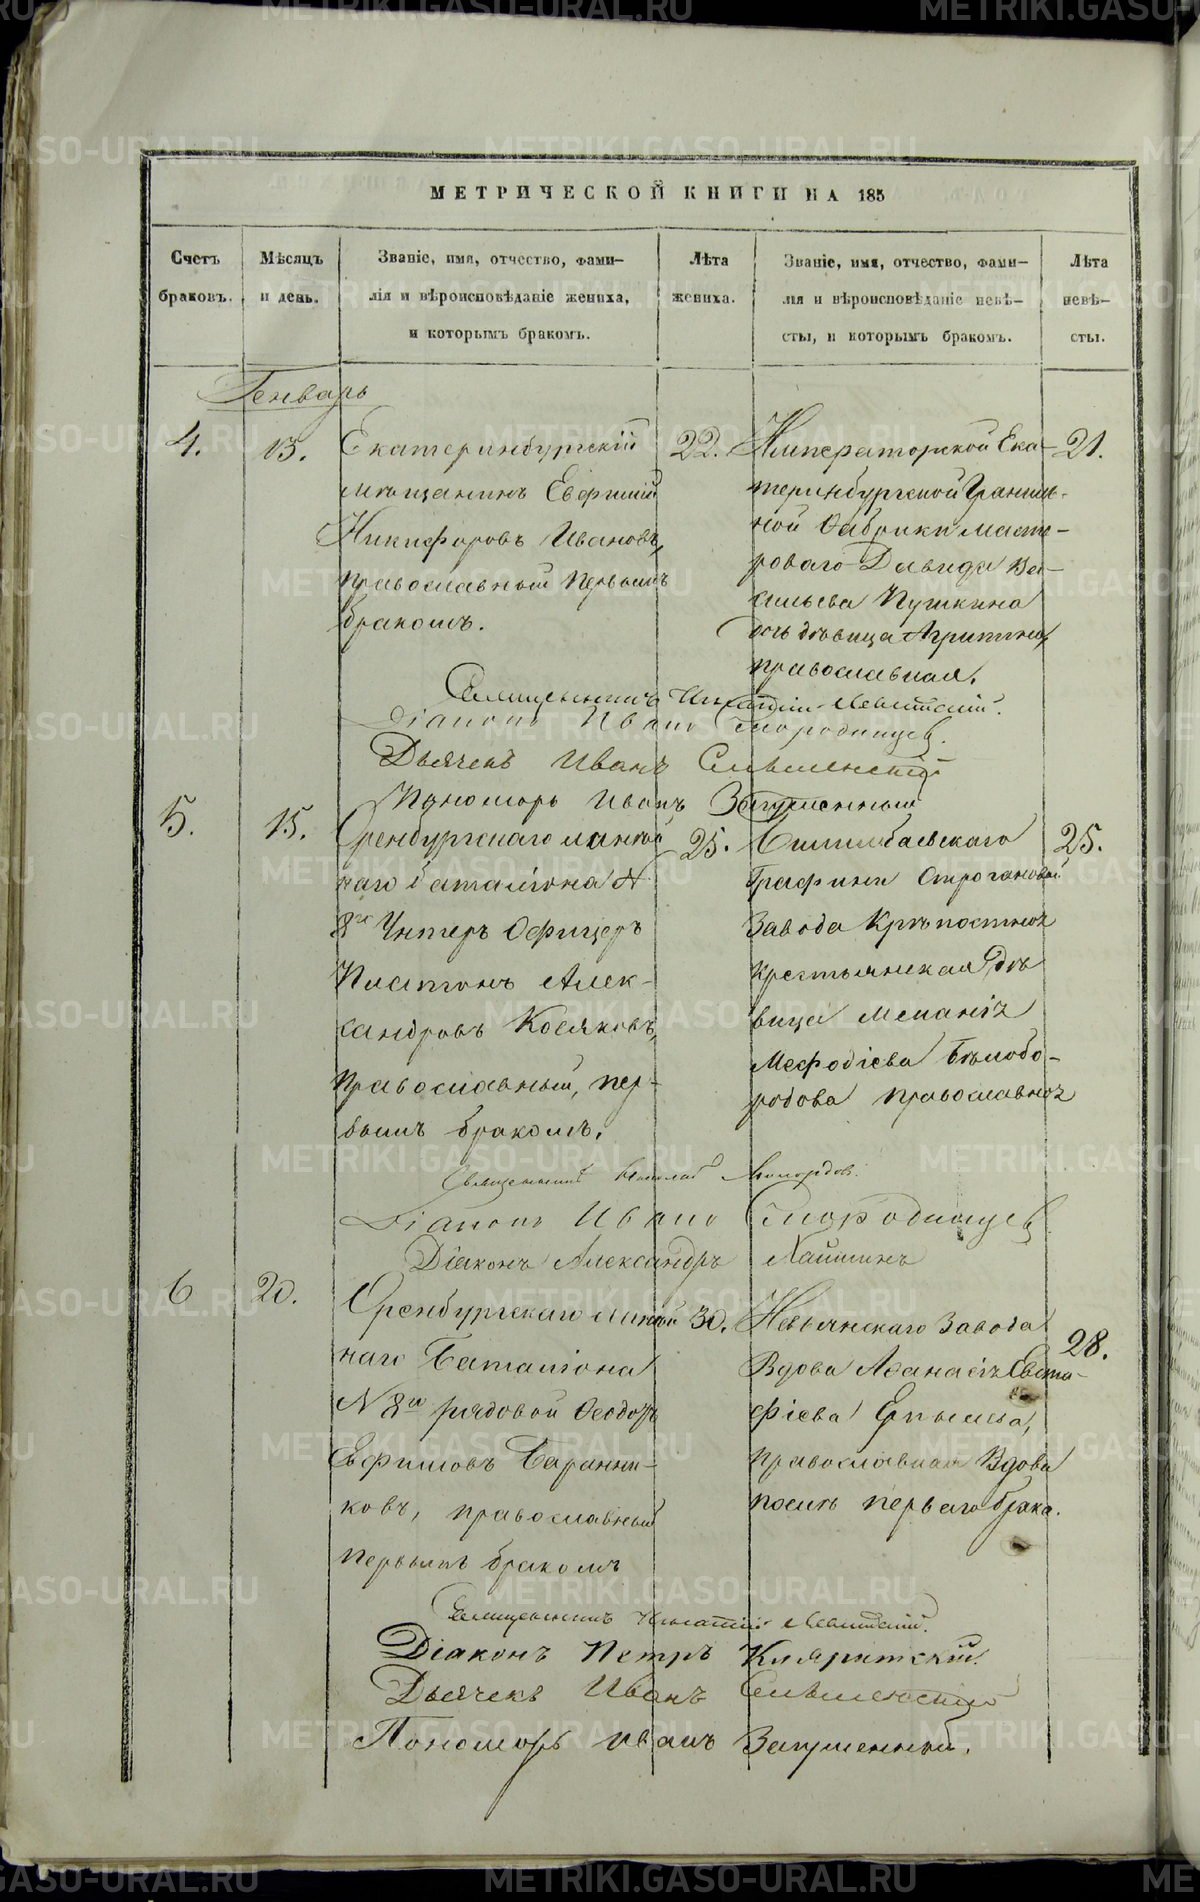 МЕТРИЧЕСКОЙ КНИГИ НА 185
Счетъ браковъ.
Мѣсяцъ и день.
Званіе, имя, отчество, фами-
лія и вѣроисповѣданіе жениха,
и которымъ бракомъ.
Лѣта жениха.
Званіе, имя, отчество, фами-
лія и вѣроисповѣданіе невѣ-
сты, и которымъ бракомъ.
Лѣта невѣ-
сты.
Генварь
4.
13.
Екатеринбургскій
мѣщанинъ Евфимій
Никифоровъ Ивановъ,
православный первымъ
бракомъ.
22.
Императорской Ека-
теринбургской Граниль-
ной Фабрики масте-
роваго Давида Ва-
сильева Пушкина
дочь дѣвица Агрипина,
православная.
21.
Священникъ Игнатій Левитскій.
Діаконъ Иванъ Смородинцев.
Дьячекъ Иванъ Сельменскій
Пономарь Иванъ Загуменный
5.
15.
Оренбургскаго линѣй
наго баталіона №
8го Унтеръ Офицеръ
Платонъ Алек-
сандровъ Косяковъ,
Православный, пер-
вымъ бракомъ.
25.
Билимбаевскаго
Графини Строгановой
Завода Крѣпостная
крестьянская дѣ
вица Меланія
Мефодіева Бѣлобо-
родова православная
25.
Священникъ Николай
Діаконъ Иванъ Смородинцев
Діаконъ Александръ
6
20.
Оренбургскаго линѣй
наго Баталіона
№ 8го рядовой Ѳеодоръ
Евфимовъ Баранни-
ковъ, православный
первымъ бракомъ
30.
Невьянскаго Завода
Вдова Аѳанасія Евста-
фіева
православная Вдова
послѣ перваго брака.
28.
Священникъ Игнатій Левитскій.
Діаконъ Петръ
Дьячекъ Иванъ Сельменскій
Пономарь Иванъ Загуменный.
METRIKI.GASO-URAL.RU